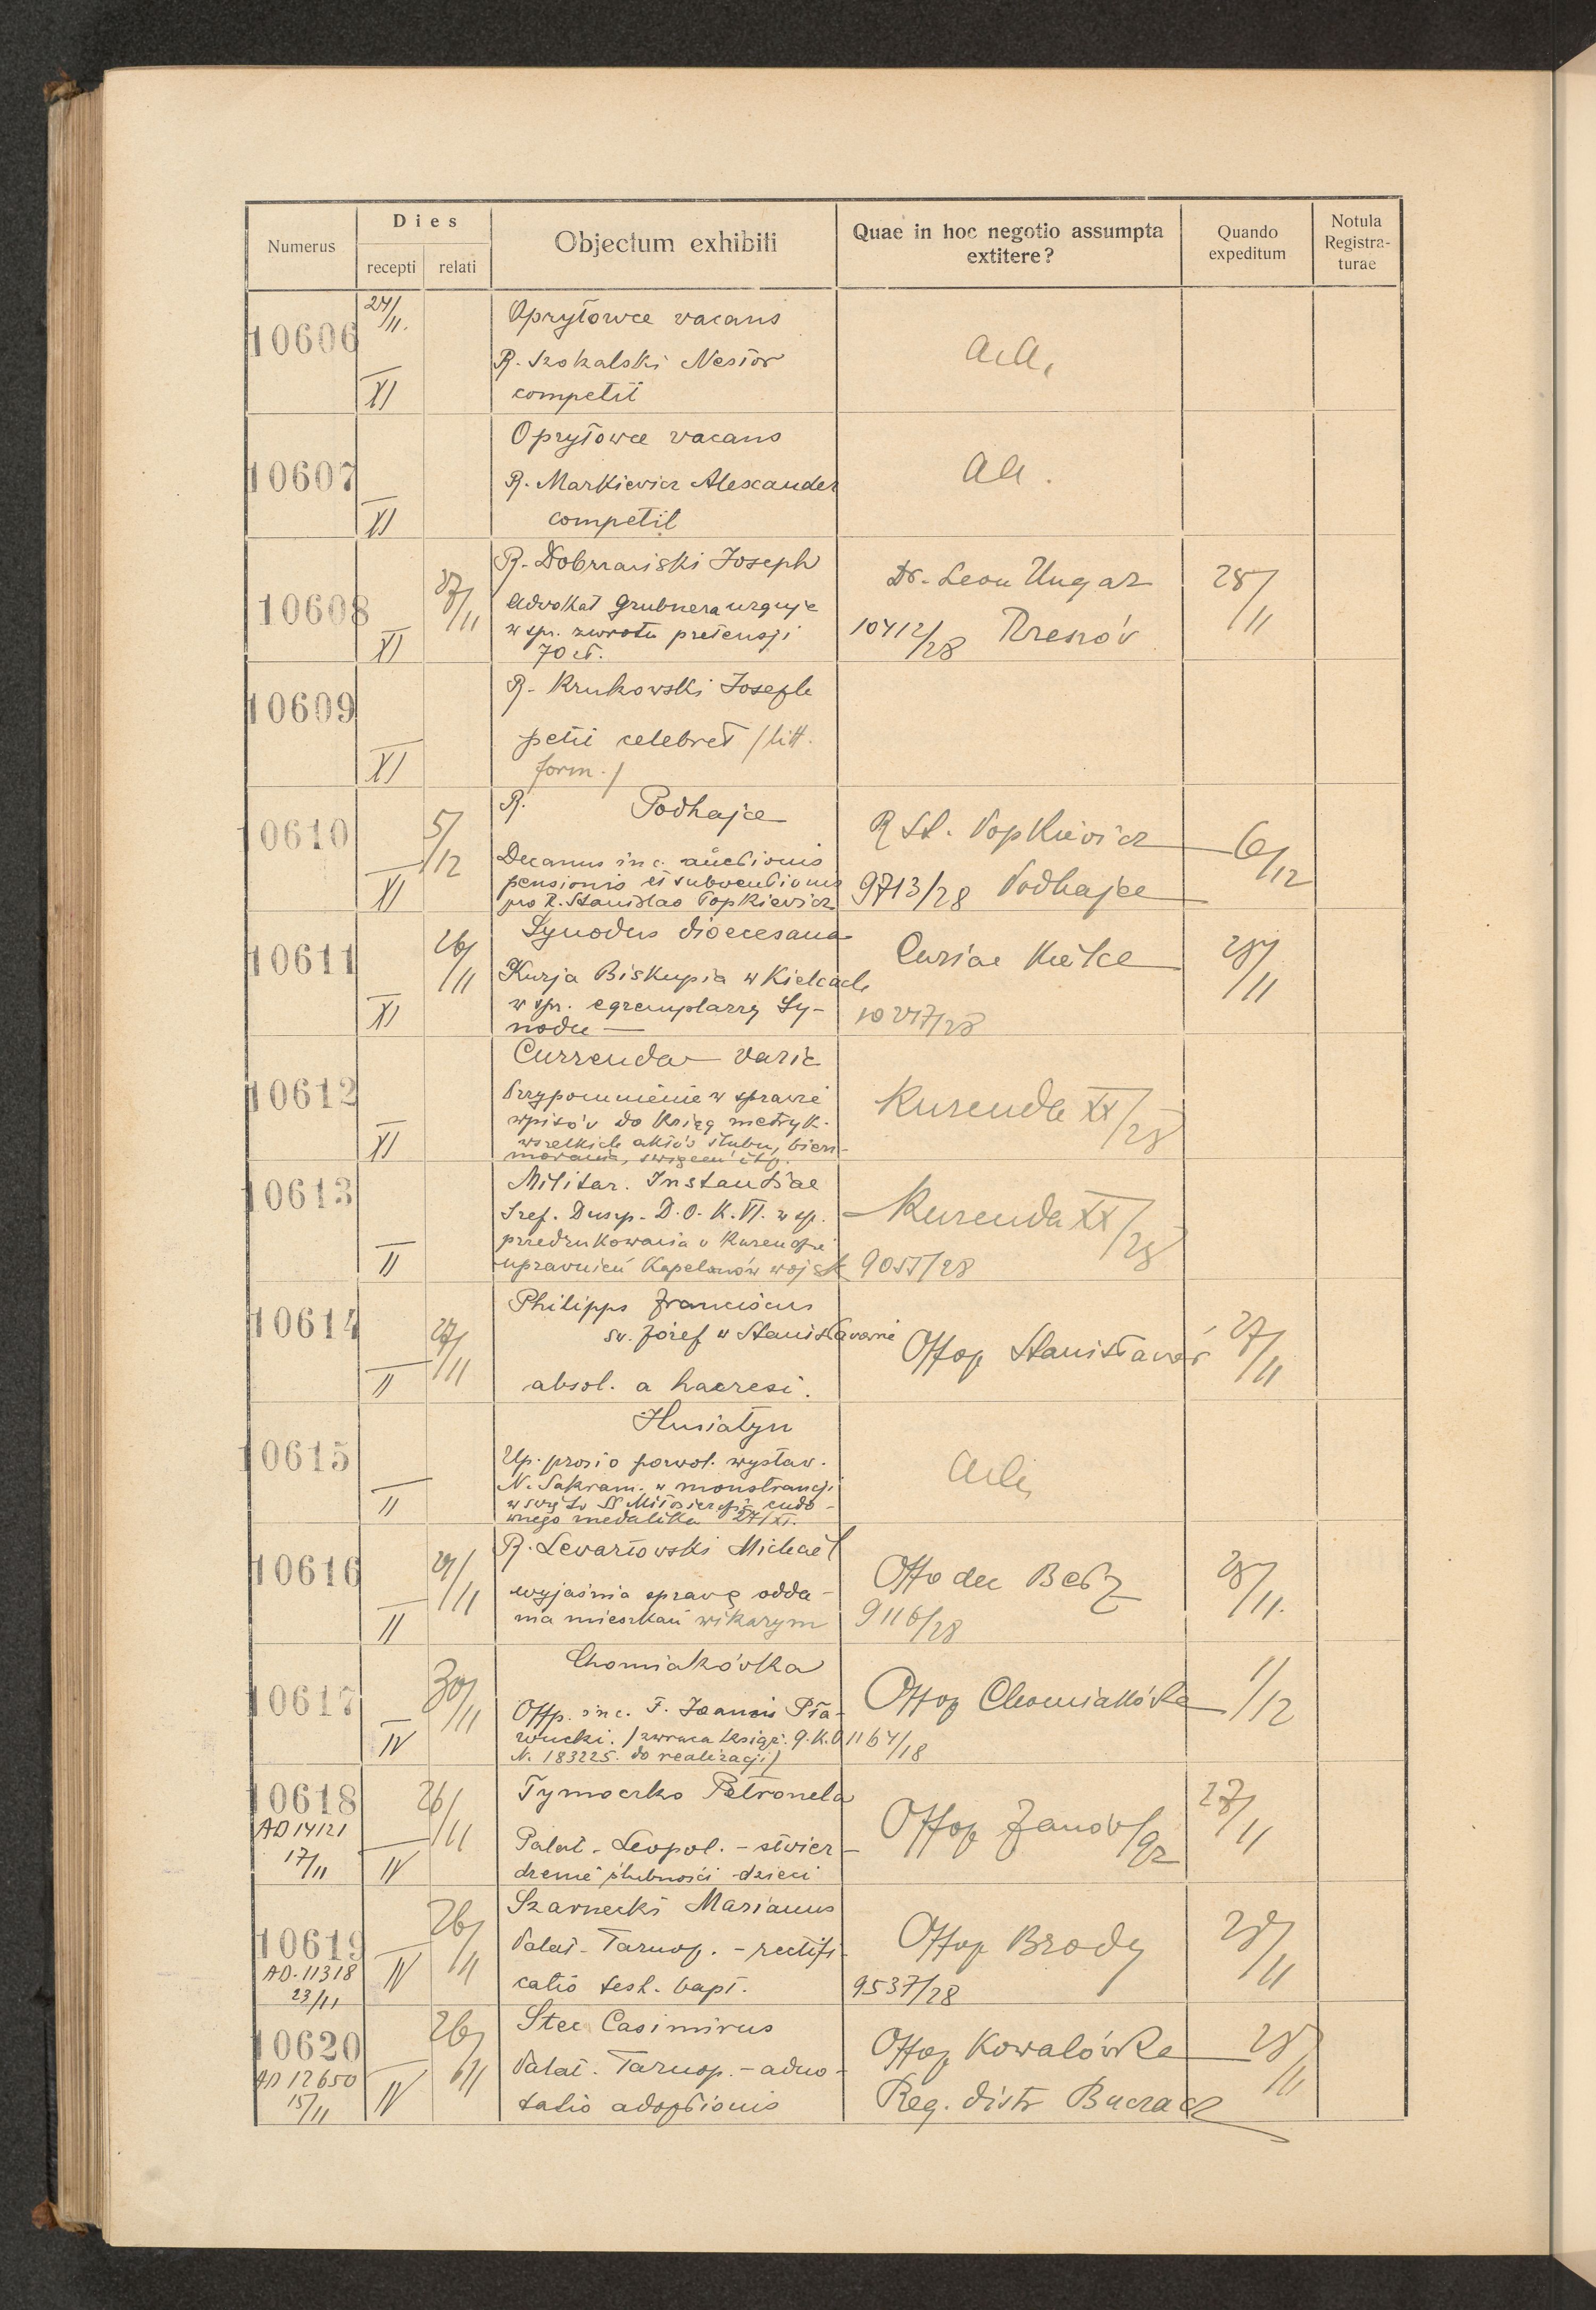 Numerus
Dies
recepti
relati
Objectum exhibiti
Quae in hoc negotio assumpta
extitere?
Quando
expeditum
Notula
Registra-
turae
10606
24/11.
XI
Opryłowce vacans
R. Szokalski Nestor
competit
a.a.
10607
XI
Opryłowce vacans
R. Markiewicz Alexander
competit
aa.
10608
XI
27/11
R. Dobrzański Joseph
advokat Grubnera urguje
w spr. zwrotu pretensji
70 zł.
Dr. Leon Ungar
10412/28 Rzeszów
28/11
10609
XI
R. Krukowski Joseph
petit celebret /litt.
form./
10610
XI
5/12
R. Podhajce
Decanus inc. auctionis
pensionis et subventionis
pro R. Stanislao Popkiewicz
R St. Popkiewicz
9713/28 Podhajce
6/12
10611
XI
26/11
Synodus dioecesana
Kurja Biskupia w Kielcach
w spr. egzemplarzy Sy-
nodu
Curiae Kielce
10247/28
28/11
10612
XI
Currenda varie
Przypomnienie w sprawie
wpisów do Ksiąg metryk.
wszelkich aktów ślubu, bierz-
mowania, święceń itp.
Kurenda XX/28
10613
II
Militar. Instantiae
Szef. Dusp. D.O.K. VI. w sp.
przedrukowania w Kurendzie
uprawnień Kapelanów wojsk
Kurenda XX/28
9055/28
10614
II
27/11
Philipps Franciscus
św. Józef w Stanisławowie
absol. a haeresi.
Offop Stanisławów
27/11
10615
II
Husiatyn
Up. prosi o pozwol. wystaw.
N. Sakram. w monstrancji
w święto SS Miłosierdzia cudo-
wnego medalika 27/XI.
a.a.
10616
II
27/11
R. Lewartowski Michaël
wyjaśnia sprawę odda-
nia mieszkań wikarym
Offo dec Bełz
9116/28
28/11.
10617
IV
30/11
Chomiakówka
Offp. inc. F. Joannis Pła-
wucki. /zwraca książ. G.K.O
N. 183225. do realizacji/
Offop Chomiakówka
1164/18
1/12
10618
AD 14121
17/11
IV
26/11
Tymoczko Petronela
Palat. Leopol. - stwier-
dzenie ślubności dzieci
Offop Janów/gr
27/11
10619
AD. 11318
23/11
IV
26/11
Szarnecki Marianus
Palat. Tarnop. - rectifi-
catio test. bapt.
Offop Brody
9537/28
28/11
10620
AD 12650
15/11
IV
26/11
Stec Casimirus
Palat. Tarnop. - adno-
tatio adoptionis
Offop Kowalówka
Reg. distr Buczacz
28/11